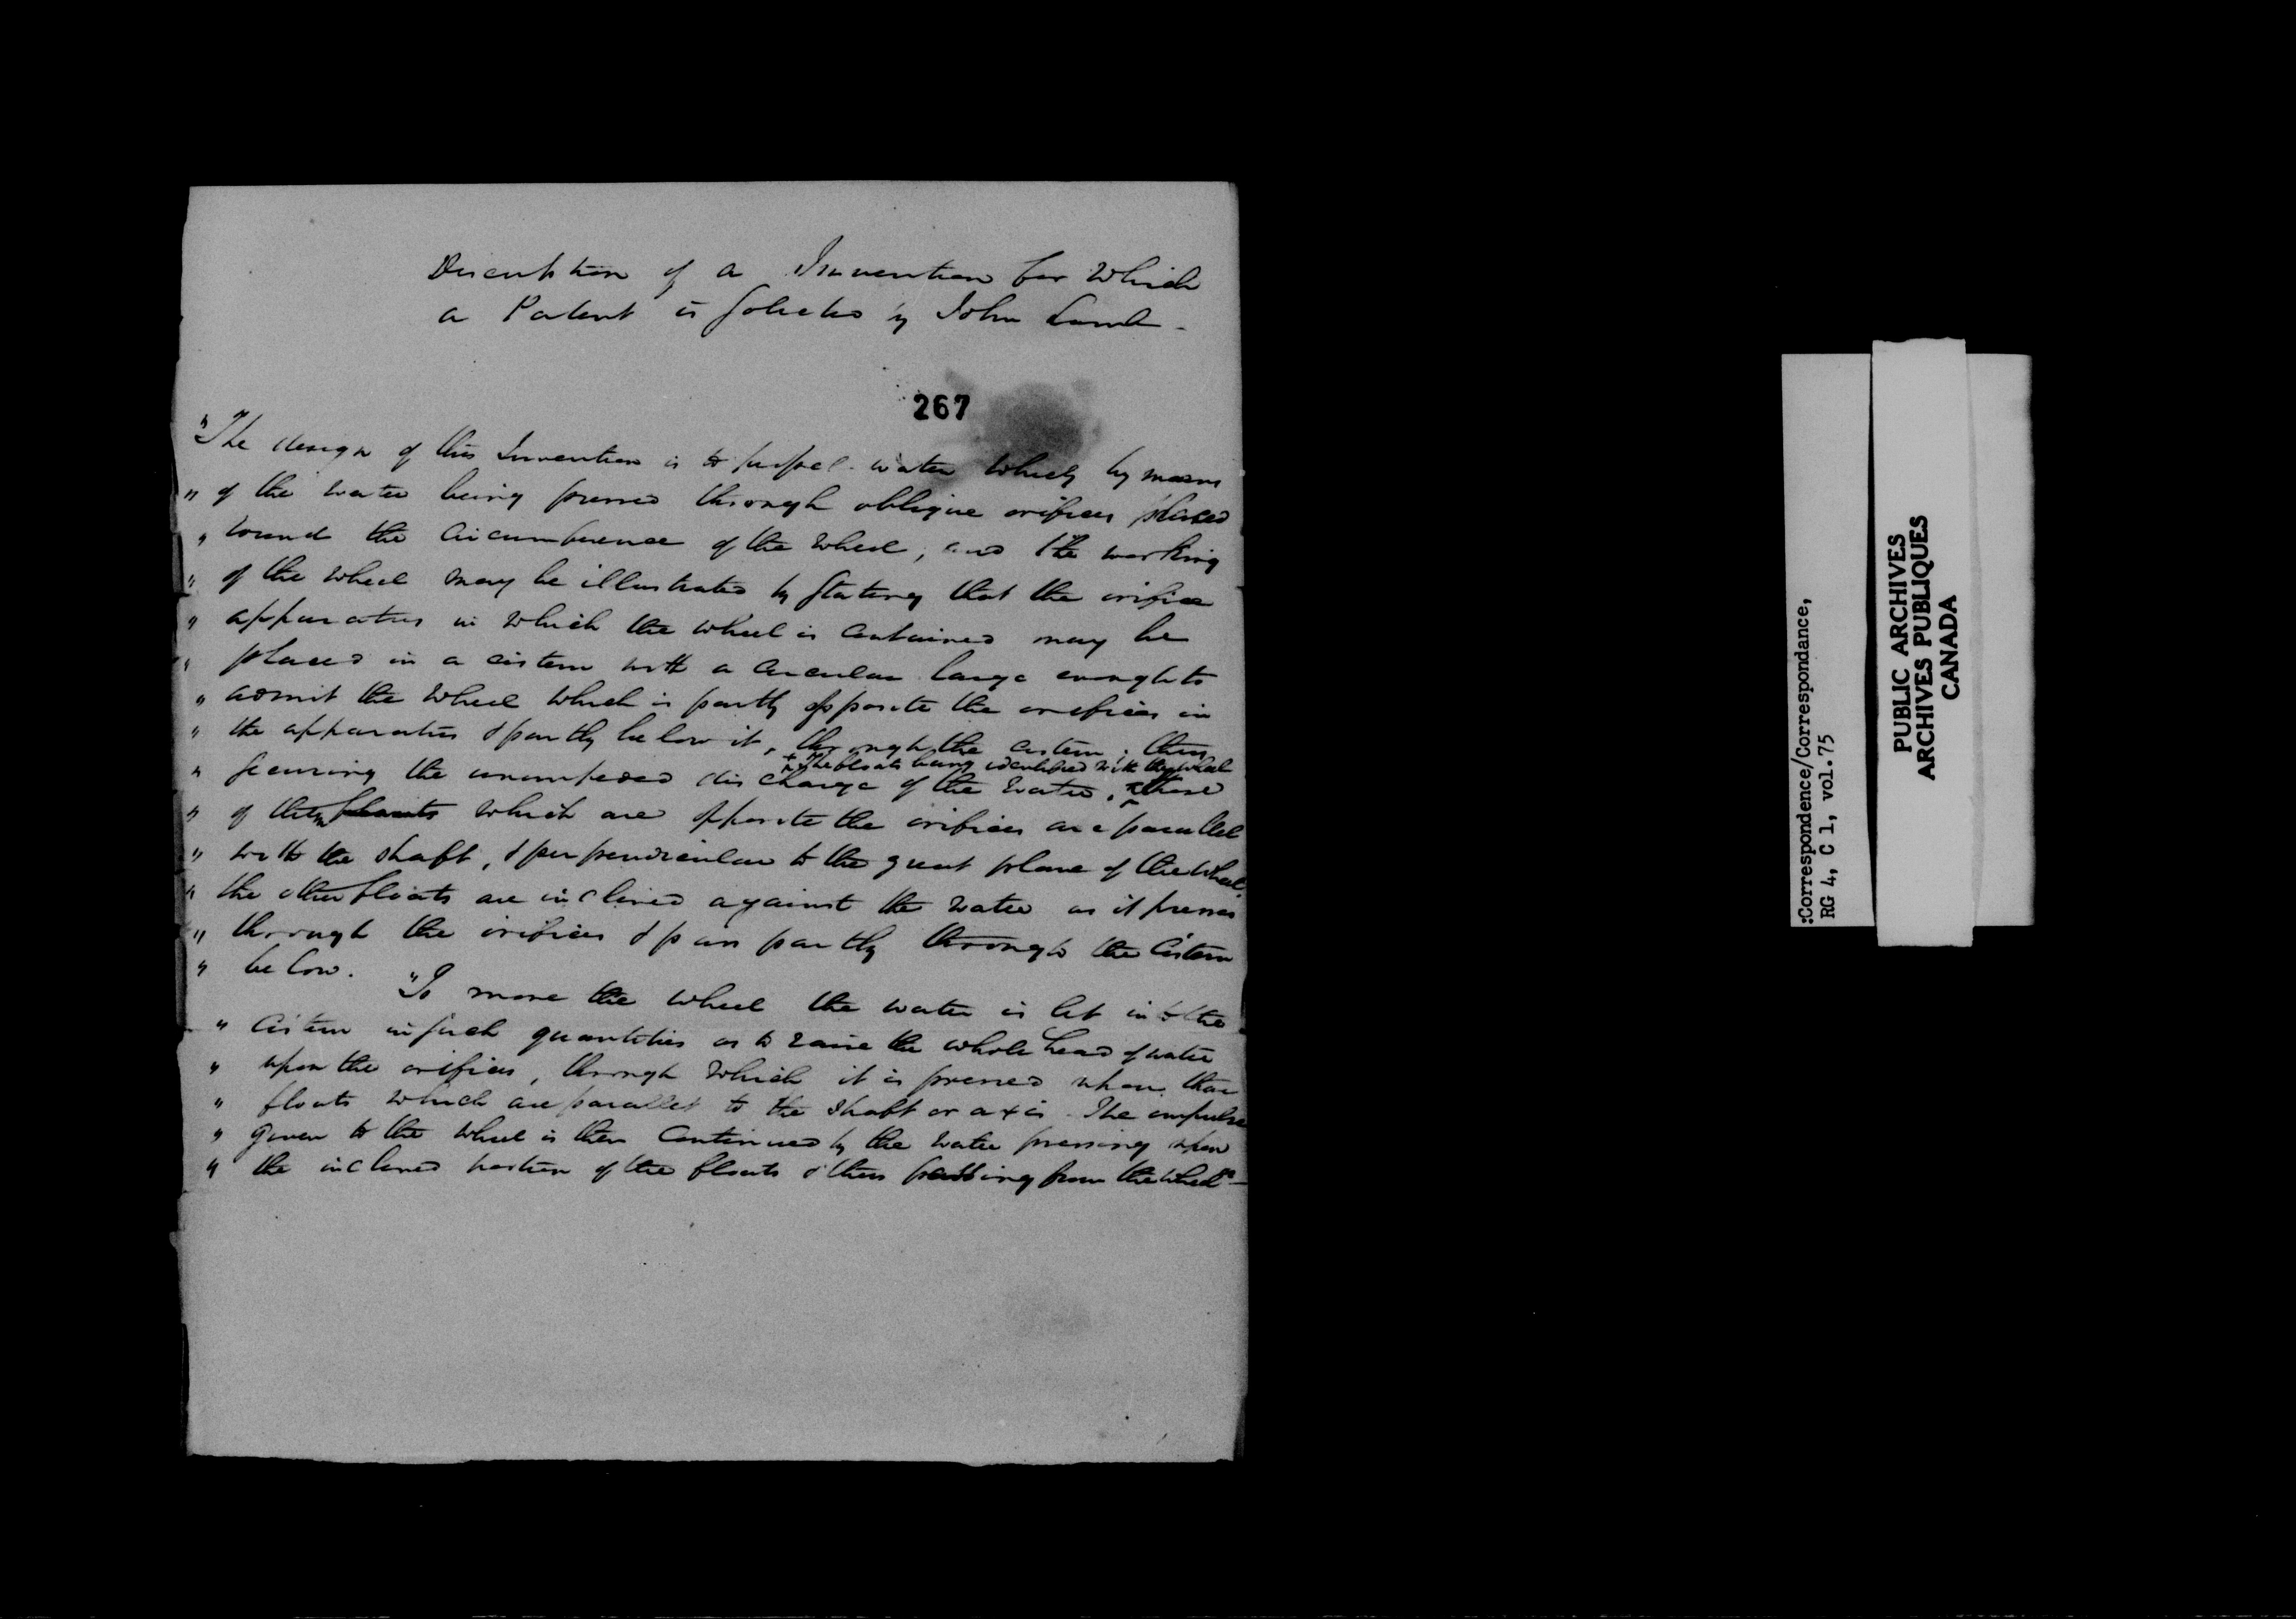 Discription of a Invention for Which
a Patent is Solicited by John Lamb -
267
"The design of this Invention is to propel water wheels by means
" of the water being pressed through oblique orifices placed
" round the Circumference of the wheel, and the working
" of the wheel may be illustrated by Stating that the orifice
" apparatus in which the wheel is Contained may be
" placed in a cistern with a Circular large enough to
" admit the wheel which is partly opposite the orifices in
" the apparatus & partly below it, through the cistern; thus
x The floats being identified with the wheel
" securing the unimpeded discharge of the water, x those
" of them floats which are opposite the orifices are parallel
" with the shaft, & perpendicular to the great plane of the wheel.
" the other floats are inclined against the water as it presses
" through the orifices & pass partly through the Cistern
" below. "To move the wheel the water is let into the
" Cistern in such quantities as to raise the whole head of water
" upon the orifices, through which it is pressed upon those
" floats which are parallel to the shaft or axis. The impulse
" given to the wheel is then Continued by the water pressing upon
" the inclined portion of the floats & thus passing from the wheel" -
:Correspondence/Correspondance,
RG 4, C 1, vol.75
PUBLIC ARCHIVES
ARCHIVES PUBLIQUES
CANADA